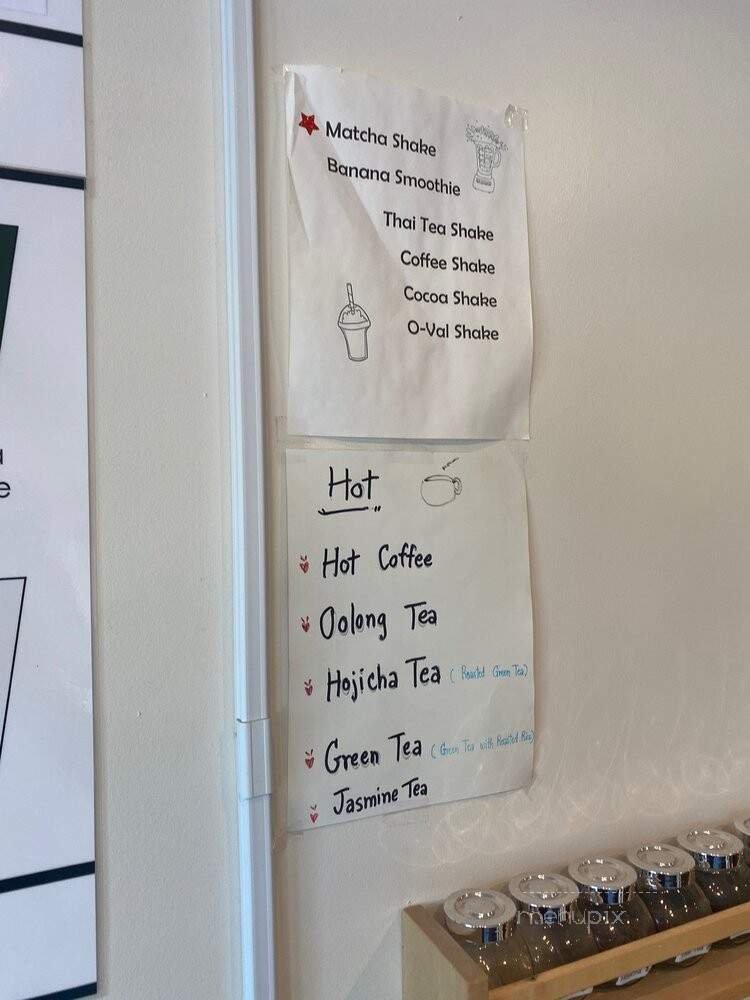 Matcha Shake
Banana Smoothie
Thai Tea Shake
Coffee Shake
Cocoa Shake
O-Val Shake
Hot
Hot Coffee
Oolong Tea
Hojicha Tea (Roasted Green Tea)
Green Tea (Green Tea with Roasted Rice)
Jasmine Tea
menupix